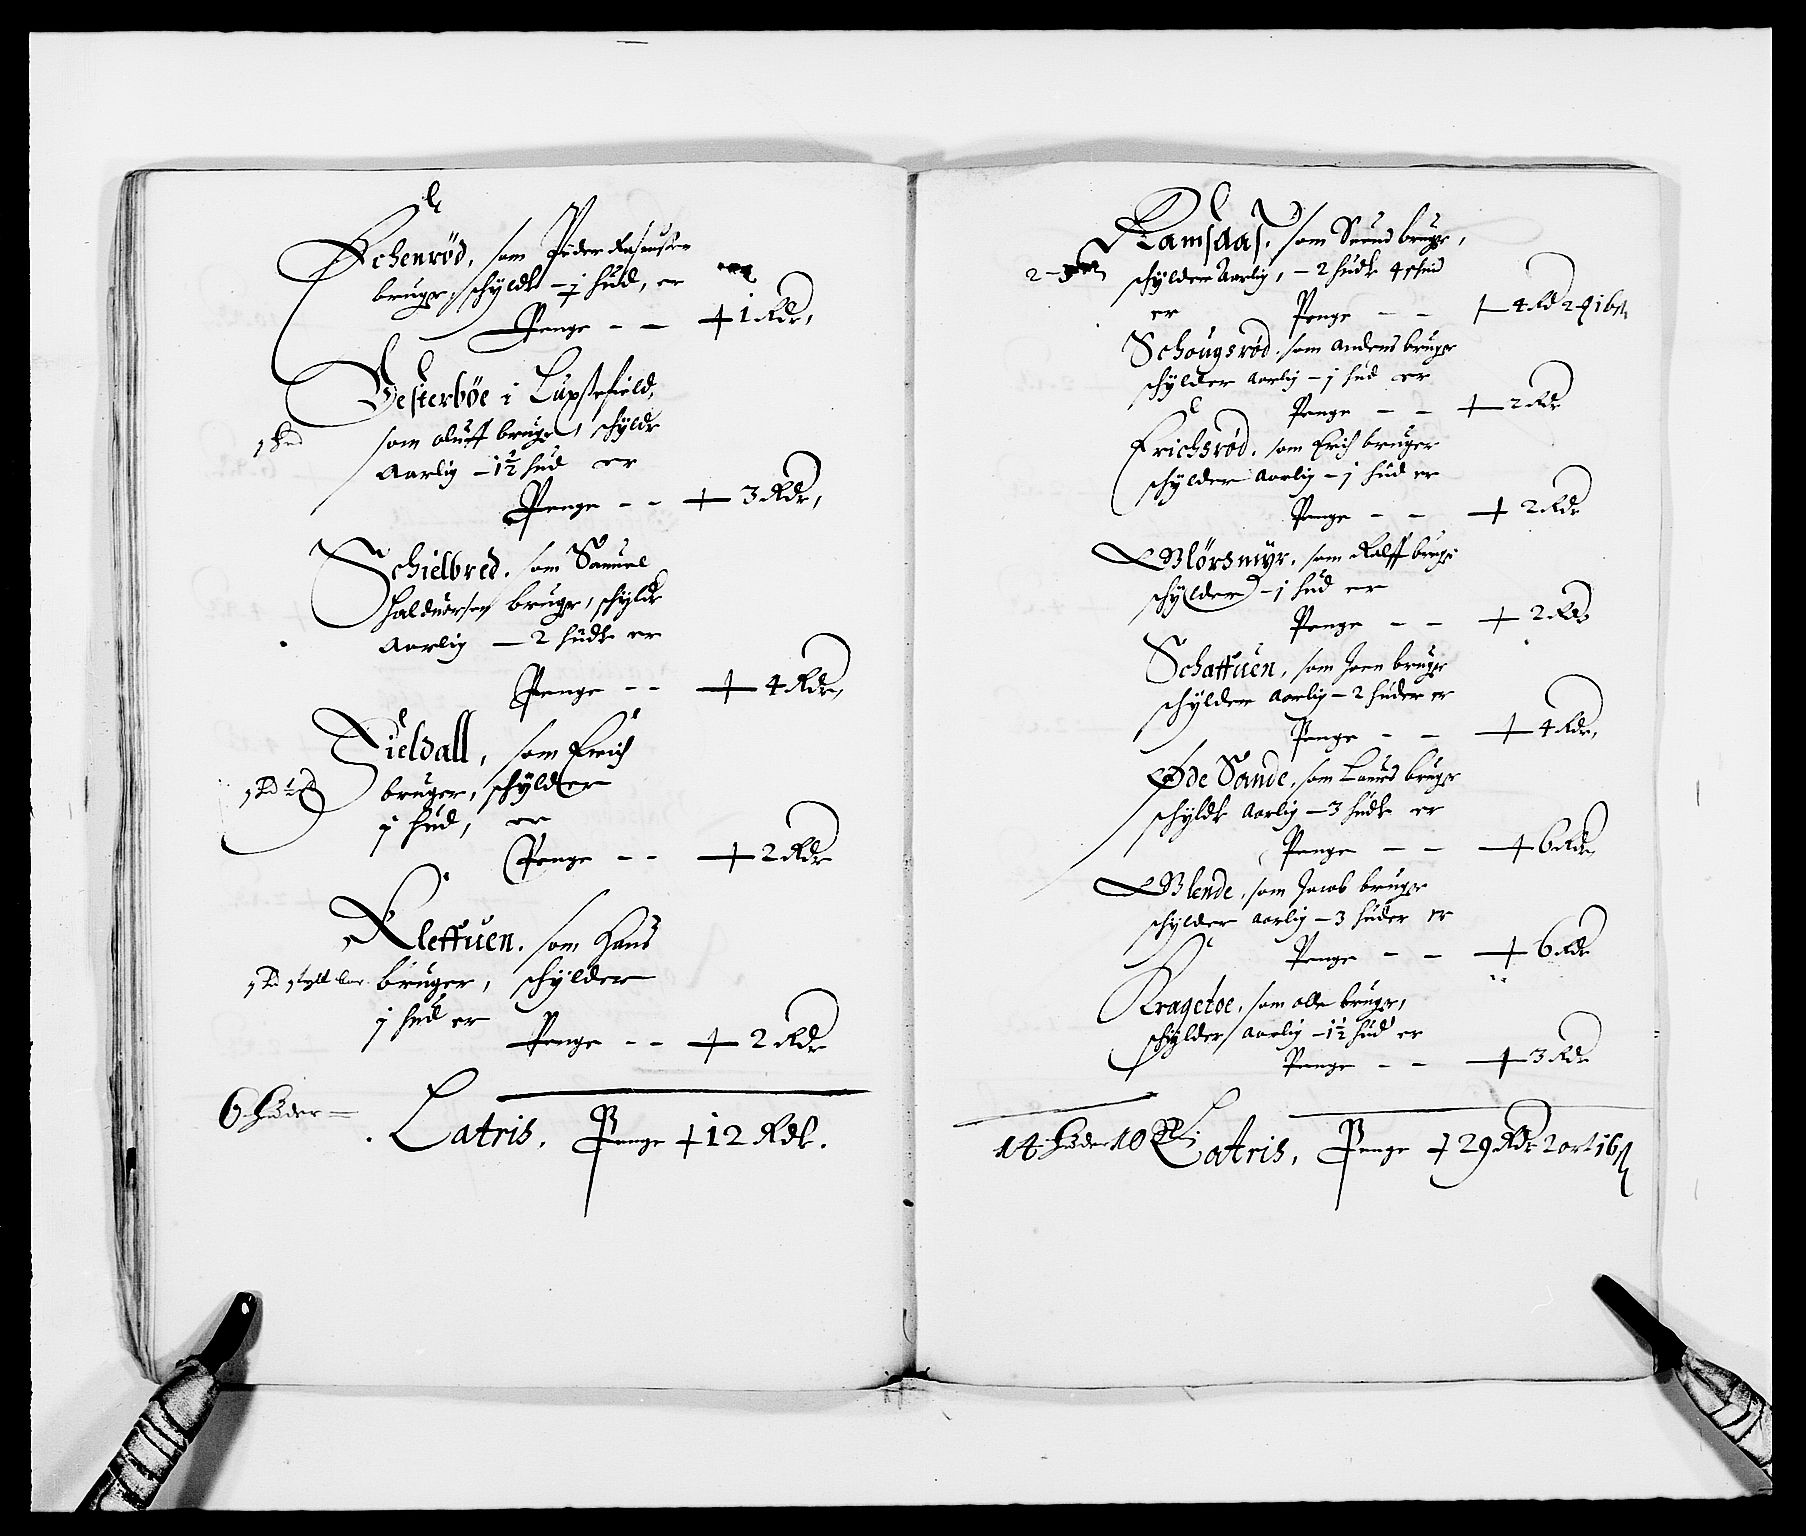 Echenrød, som Peder Rasmusen
bruger, schylder – ½ hud, er
Penge – – 1 Rdr,
Vesterbøe i Lupstefield,
som oluff bruger, schylder
1 hud
Aarlig – 1½ hud er
Penge – – 3 Rdr,
Schielbred. som Samuel
haluorsen bruger, schylder
Aarlig – 2 huder er
Penge – – 4 Rdr,
Fieldall, som Erich
bruger, schylder
j hud, er
Penge – – 2 Rdr
Kleffuen. som Hans
bruger, schylder
j hud er
Penge – – 2 Rdr
6 huder –
Latris. Penge 12 Rdr.
Ramsaas. som Suend bruger,
schylder Aarlig, – 2 huder 4 skind
er Penge – – 4 Rd 2 ort 16 ß
Schougsrød. som anders bruger
schylder Aarlig – j hud er
Penge – – 2 Rdr
Erichsrød. som Erich bruger
schylder Aarlig – j hud er
Penge – – 2 Rdr
Mørdmyr. som Rolff bruger
schylder – j hud er
Penge – – 2 Rdr
Schaffuen, som Joen bruger
schylder Aarlig – 2 huder er
Penge – – 4 Rdr,
Øde Sande. som Laurs bruger
schylder Aarlig – 3 huder er
Penge – – 6 Rdr
Blende, som Jacob bruger
schylder Aarlig – 3 huder er
Penge – – 6 Rdr
Kragetoe. som olle bruger,
schylder Aarlig – 1½ hud er
Penge – – 3 Rdr
14 huder 10
Latris. Penge 29 Rdr 2 ort 16 ß